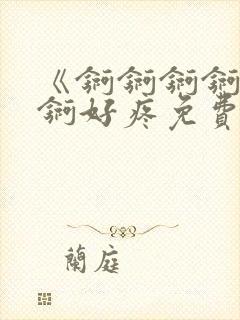 《錒錒錒錒
錒好疼免費
蘭庭